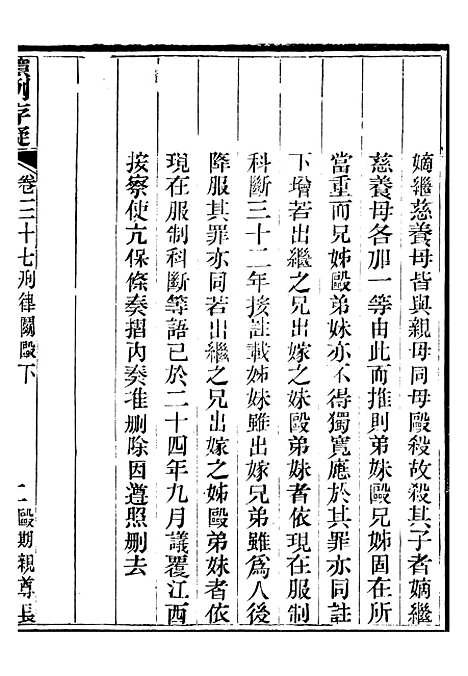 嫡繼慈養母皆與親母同母毆殺故殺其子者嫡繼
慈養母各加一等由此而推則弟妹毆兄姊固在所
當重而兄姊毆弟妹亦不得獨寬應於其罪亦同註
下增若出繼之兄出嫁之妹毆弟妹者依現在服制
科斷三十二年按註載姊妹雖出嫁兄弟雖為人後
降服其罪亦同若出繼之兄出嫁之姊毆弟妹者依
現在服制科斷等語已於二十四年九月議覆江西
按察使亢保條奏摺內奏准刪除因遵照刪去
讀例存疑
卷三十七刑律鬭毆下
二毆期親尊長